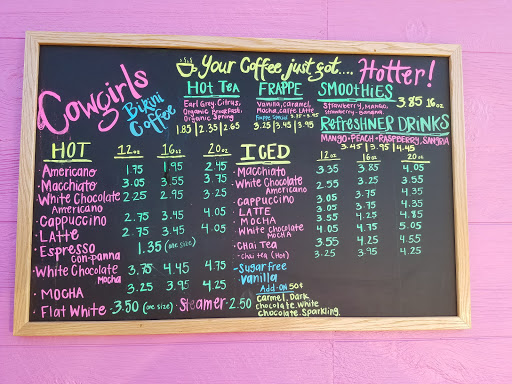 Cowgirls
Bikini
Coffee
Your Coffee just got.... Hotter!
HOT Tea
Earl Grey, Citrus,
Organic Breakfast,
Organic Spring
1.85 | 2.35 | 2.65
FRAPPE
Vanilla, caramel
Mocha, caffe Latte
Frappe Special
3.25 | 3.45 | 3.95
SMOOTHIES
Strawberry, Mango,
Strawberry-Banana,
3.85 16oz
Refreshner Drinks
Mango•Peach•Raspberry, Sangria
3.45 | 3.95 | 4.45
HOT 12oz 16oz 20oz
•Americano 1.75 1.95 2.45
•Macchiato 3.05 3.55 3.75
•White Chocolate Americano 2.25 2.95 3.25
•Cappuccino 2.75 3.45 4.05
•Latte 2.75 3.45 4.05
•Espresso con-panna 1.35 (one size)
White Chocolate Mocha 3.75 4.45 4.75
•Mocha 3.25 3.95 4.25
•Flat White • 3.50 (one size) • Steamer • 2.50
ICED 12oz 16oz 20oz
•Macchiato 3.35 3.85 4.05
White Chocolate Americano 2.55 3.25 3.55
•Cappuccino 3.05 3.75 4.35
•Latte 3.05 3.75 4.35
•Mocha 3.55 4.25 4.85
•White Chocolate Mocha 4.05 4.75 5.05
•Chai Tea 3.55 4.25 4.55
-Chai Tea (Hot) 3.25 3.95 4.25
-Sugar Free
Vanilla
Add-on 50¢
Carmel, Dark
chocolate, White
chocolate, Sparkling.